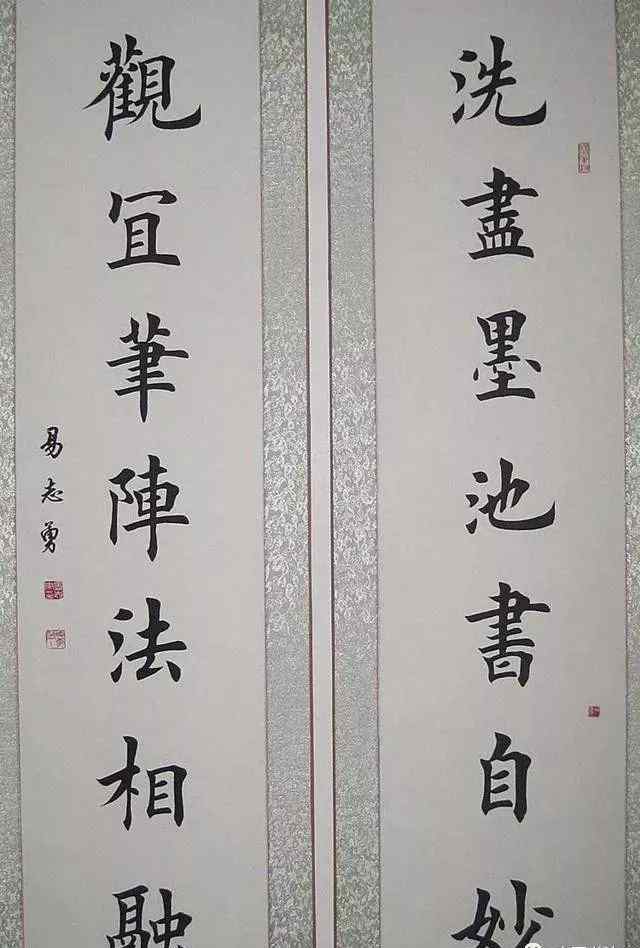 洗盡墨池書自妙
觀冝筆陣法相融
易志勇